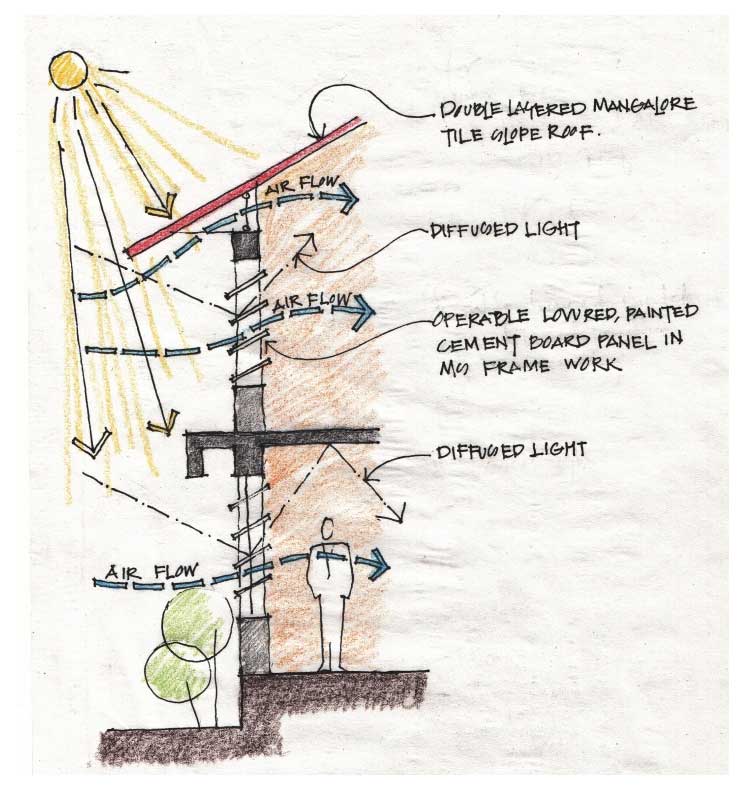 DOUBLE LAYERED MANGALORE
TILE SLOPE ROOF.
AIR FLOW
DIFFUSED LIGHT
AIR FLOW
OPERABLE LOVURED, PAINTED
CEMENT BOARD PANEL IN
MS FRAME WORK
DIFFUSED LIGHT
AIR FLOW